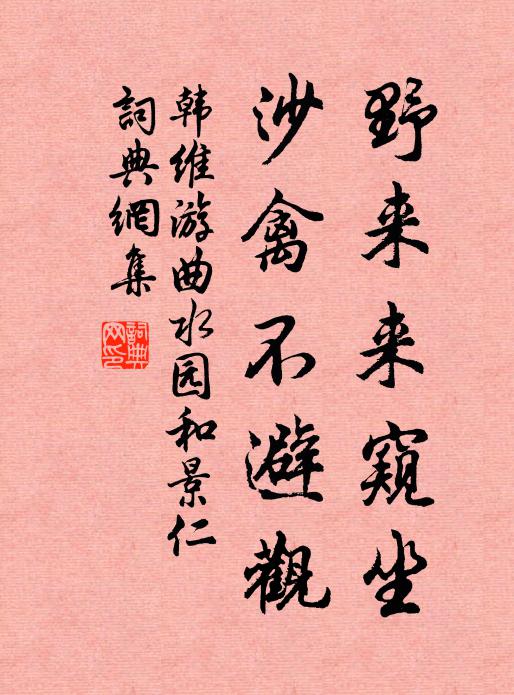 野来来窺坐
沙禽不避觀
韩维游曲水园和景仁
詞典網集
詞典
网印